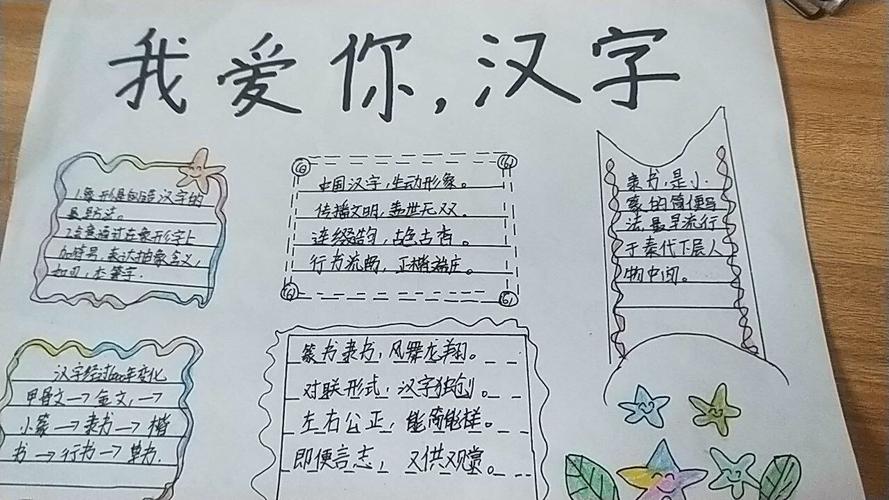 我爱你，汉字
1.象形是创造汉字的
最早方法。
2.会意通过在象形字上
加符号，表达抽象含义，
如刃，本等字.
中国汉字，生动形象。
传播文明，盖世无双。
连缀韵句，古色古香。
行书流畅，正楷端庄。
隶书，是小
篆的简便写
法最早流行
于秦代下层人
物中间。
汉字经过6000年变化
甲骨文→金文，→
小篆→隶书→楷
书→行书→草书.
篆书隶书，风舞龙翔。
对联形式，汉字独创。
左右公正，能简能详。
即便言志，又供观赏。